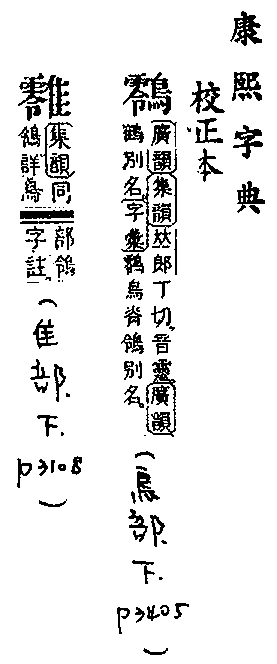 康熙字典
校正本
䴇
廣韻集韻𠀤郎丁切音靈廣韻
鶴別名字彙䴇鳥脊鴒別名
(鳥部.下.p3405)
集韻同
鴒詳鳥
部鴒
字註
(隹部.下.p3108)